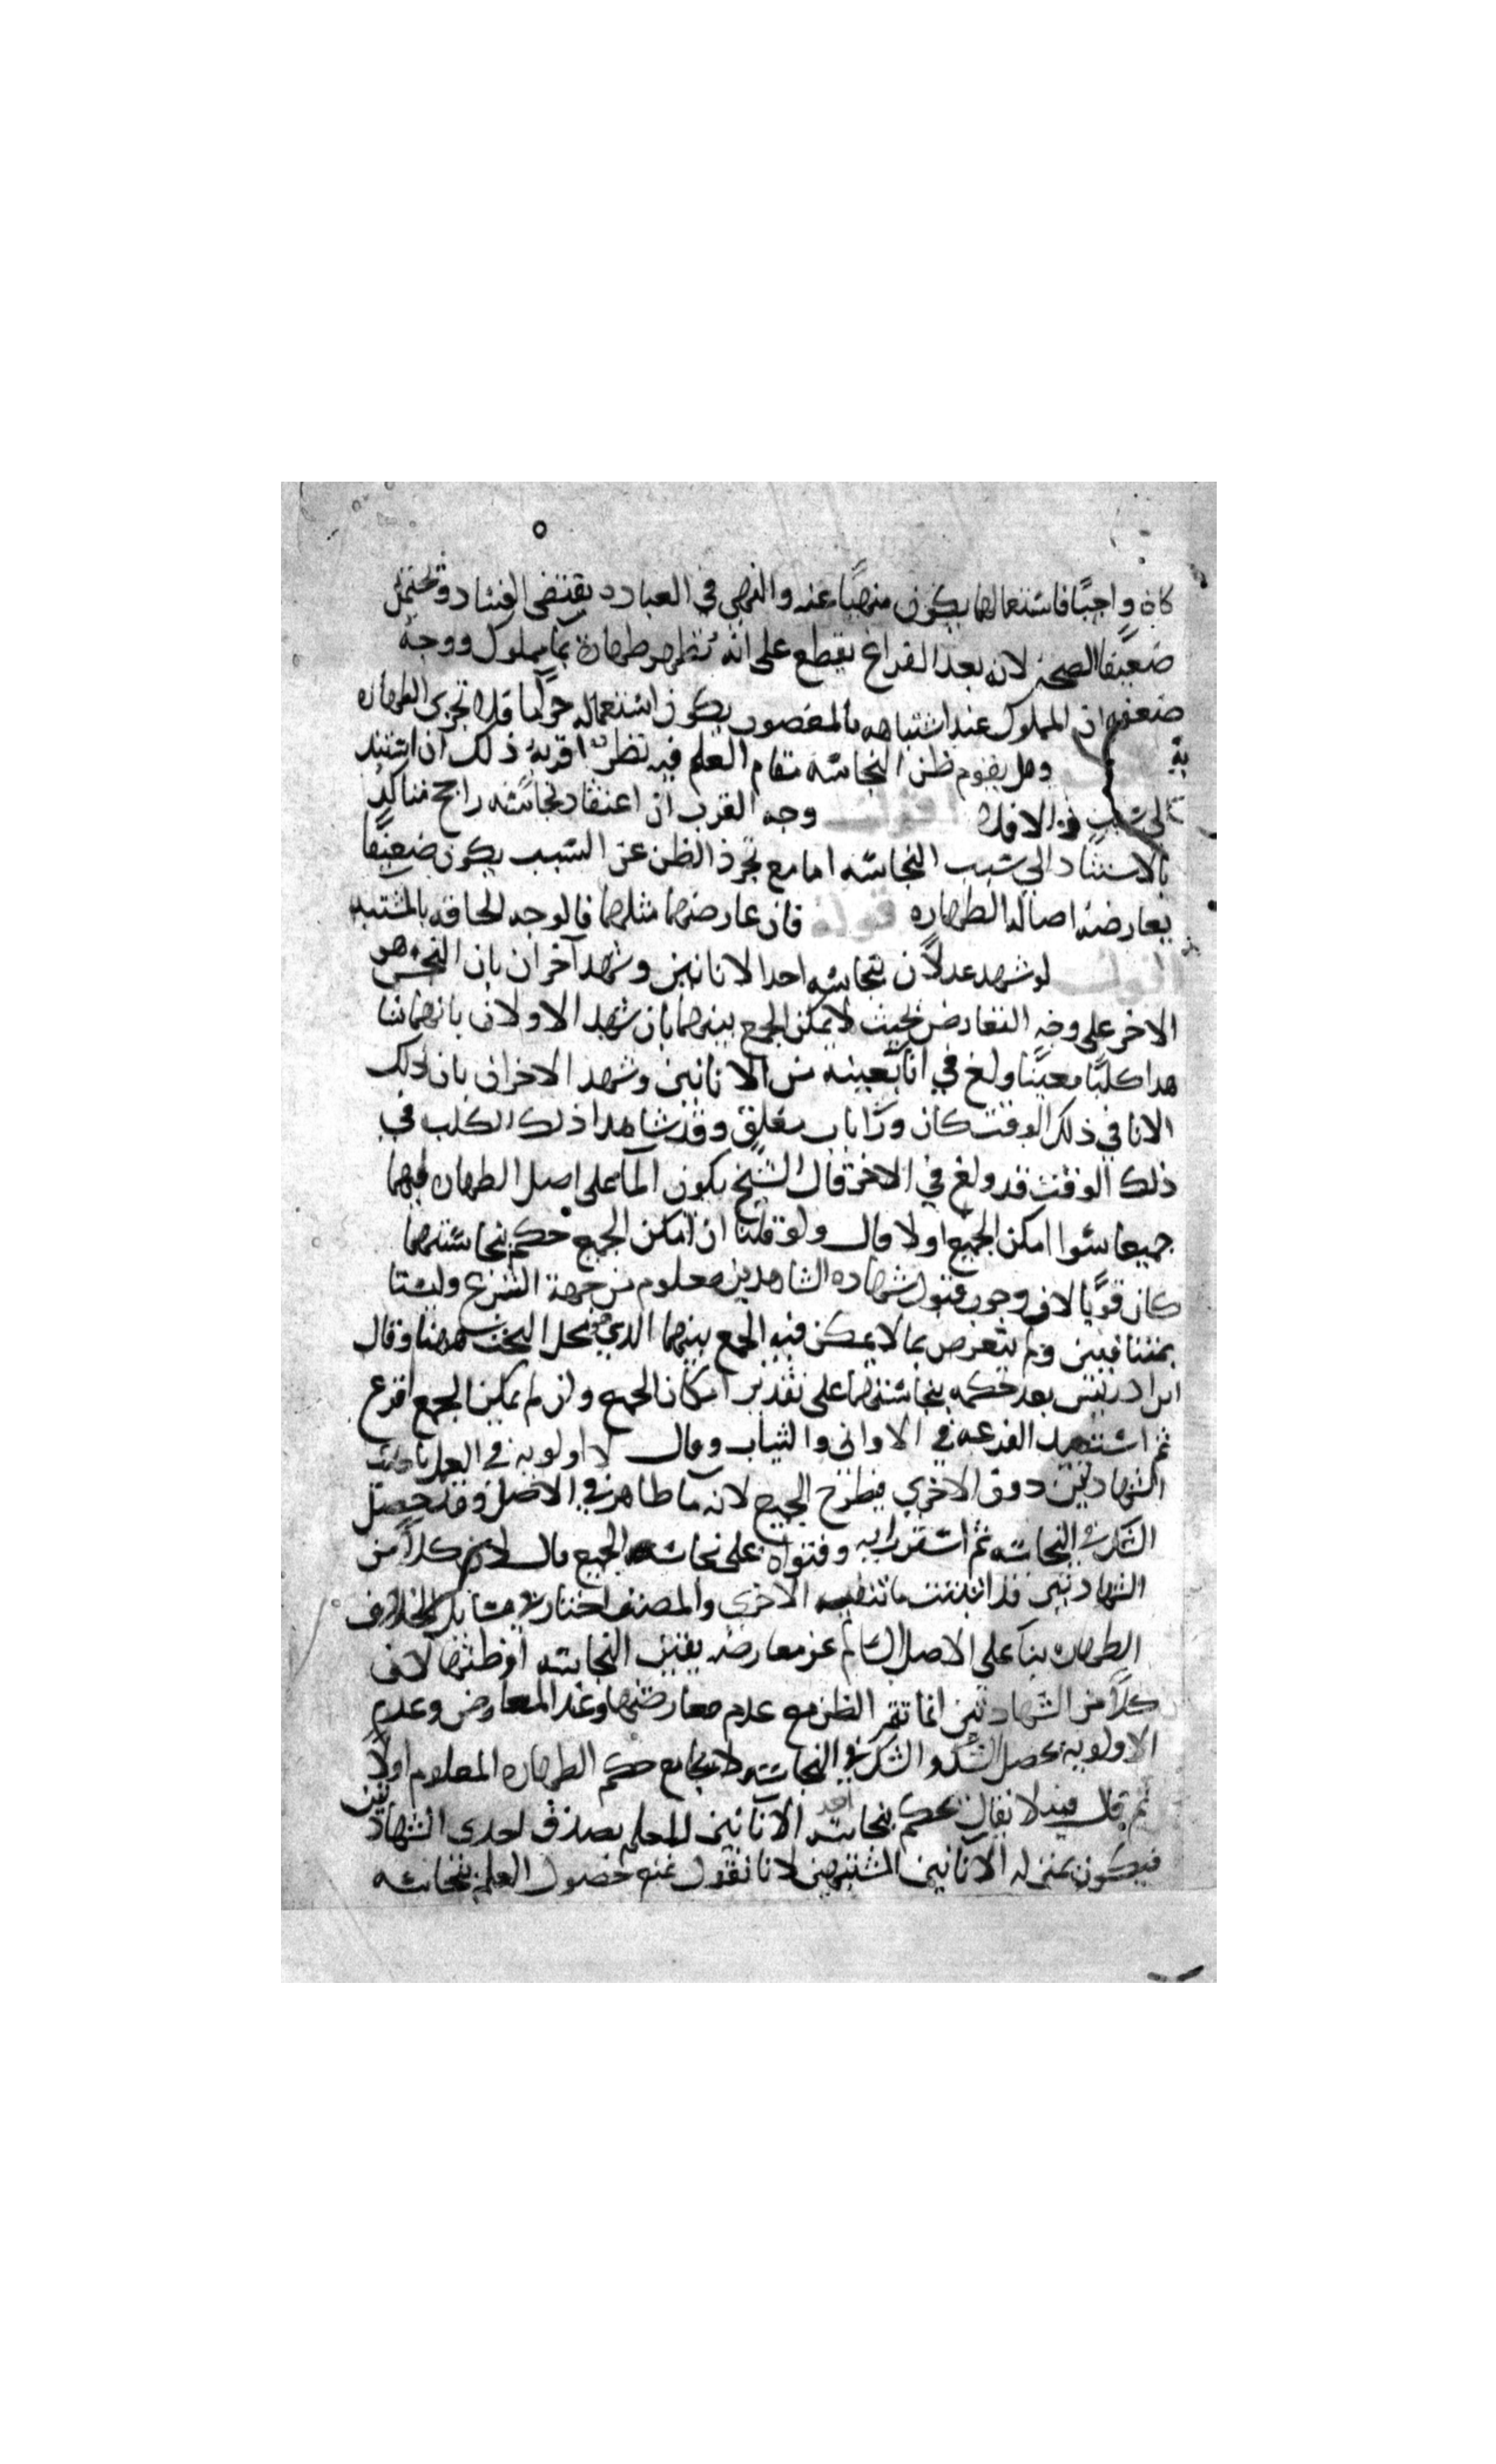 كان واجبًا فاستعمالهما يكون منهيًا عنه والنهي في العبادة يقتضي الفساد ويحتمل
ضعيفًا الصحة لانه بعد الفراغ يقطع على انه تطهر طهارة بماء مملوك ووجه
ضعفه ان المملوك عند اشتباهه بالمغصوب يكون استعماله حرامًا فلا تجزي الطهارة
به وهل يقوم ظن النجاسة مقام العلم فيه نظر اقربه ذلك ان استند
الى سبب والا فلا اقول وجه القرب ان اعتقاد نجاسته راجح متاكد
بالاستناد الي سبب النجاسة اما مع تجرد الظن عن السبب يكون ضعيفًا
يعارضه اصالة الطهارة قوله فان عارضهما مثلهما فالوجه الحاقه بالمشتبه
اقول لو شهد عدلان بنجاسة احد الانائين وشهد آخران بان النجس هو
الاخر على وجه التعارض بحيث لا يمكن الجمع بينهما بان شهد الاولان بانهما شا
هدا كلبًا معينًا ولغ في اناء بعينه من الانائين وشهد الاخران بان ذلك
الانا في ذلك الوقت كان وراء باب مغلق وقد شاهدا ذلك الكلب في
ذلك الوقت قد ولغ في الاخر قال الشيخ يكون الماء على اصل الطهارة فيهما
جميعا سوا امكن الجمع اولا قال ولو قلنا ان امكن الجمع حكم بنجاستهما
كان قويًا لان وجوب قبول شهادة الشاهدين معلوم من جهة الشرع وليستا
بمتنافيين ولم يتعرض بما لا يمكن فيه الجمع بينهما الذي هو محل البحث ههنا وقال
ابن ادريس بعد حكمه بنجاستهما على تقدير امكان الجمع وان لم يمكن الجمع اقرع
ثم استبعد القرعة في الاواني والثياب وقال لا اولوية في العمل باحدى
الشهادتين دون الاخري فيطرح الجميع لانه ماء طاهر في الاصل وقد حصل
الشك في النجاسة ثم استقر رايه وفتواه على نجاسة الجميع قال لان كلاً من
الشهادتين قد اثبتت ما تنفيه الاخري والمصنف اختار في مسائل الخلاف
الطهارة بناءً على الاصل السالم عن معارضة يقين النجاسة او ظنها لان
كلاً من الشهادتين انما تثمر الظن مع عدم معارضتها وعند المعارض وعدم
الاولوية يحصل الشك والشك في النجاسة لا يجامع حكم الطهارة المعلوم اولاً
ثم قال فيه لا يقال نحكم بنجاسة احد الانائين للعلم بصدق احدى الشهادتين
فيكون بمنزلة الانائين المشتبهين لانا نقول نمنع حصول العلم بنجاسة